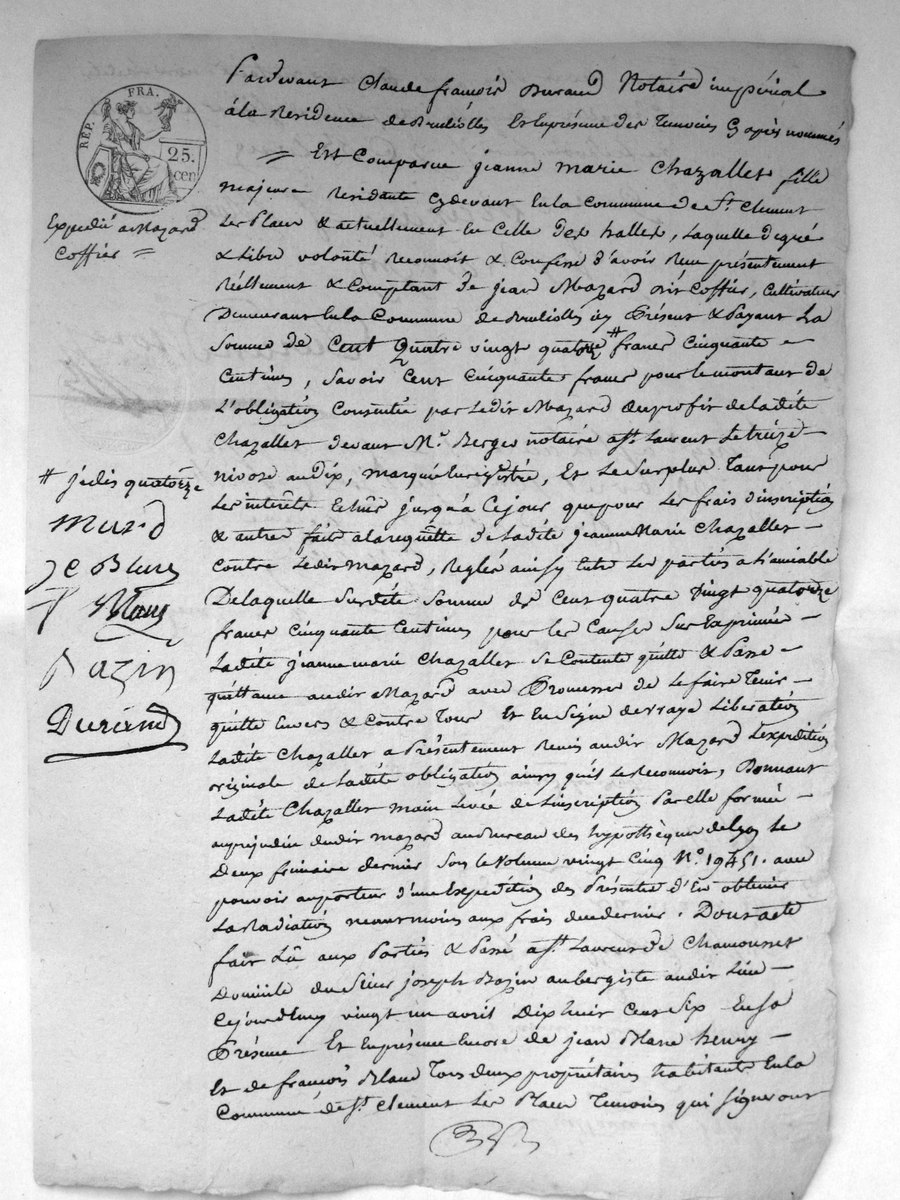 RÉP. FRA.
25.
cen.
Expedié a Mazard
Coffier =
Pardevant Claude françois Durand Notaire impérial
á la Residence de Brullioles Et En présence des Temoins Cy après nommés
= Est Comparue jeanne marie Chazallet fille
majeure Residante cydevant En la Commune de St. Clement
Les Places & actuellement En Celle des halles, laquelle de gré
& Libre volonté Reconnoit & Confesse d'avoir Reçu présentement
Réellement & Comptant de jean Mazard dit Coffier, Cultivateur
Demeurant En la Commune de Brullioles icy Présent & Payant La
Somme de Cent Quatre vingt quatorze # francs Cinquante =
Centimes, Savoir Cent Cinquante francs pour le montant de
L'obligation Consentie par Ledit Mazard au profit de ladite
Chazallet devant Me. Berger notaire a St. Laurent Le treize
nivose an dix, marquée Enregistrée, Et Le Surplus Tant pour
Les interêts Echûs jusqu'à Ce jour que pour Les frais d'inscription
& autres faits a la requête de Ladite jeanne Marie Chazallet
Contre Ledit Mazard, Reglés ainsy Entre Les parties a L'amiable
De laquelle Susdite Somme de Cent quatre Vingt quatorze
francs Cinquante Centimes pour les Causes Sus Exprimées
Ladite jeanne marie Chazallet Se Contente quitte & Passe
quittance audit Mazard avec Promesse de Le faire Tenir
quitte Envers & Contre Tous Et En Signe de vraye Libération
Ladite Chazallet a Présentement Remis audit Mazard L'expedition
originale de Ladite obligation ainsy qu'il Le Reconnoit, Donnant
Ladite Chazallet main Levée de L'inscription Par elle formée
au préjudice dudit Mazard au Bureau des hypothèques de Lyon Le
Deux frimaire dernier Sous Le Volume vingt Cinq No. 19451. avec
pouvoir au porteur d'une Expédition des Présentes d'En obtenir
La Radiation neanmoins aux frais de ce dernier. Dont acte
fait Lû aux Parties & Passé a St. Laurent de Chamousset
Domicile du Sieur joseph Bazin aubergiste audit Lieu
Cejourdhuy vingt un avril Dix huit Cent Six En Sa
Présence Et En présence Encore de jean Marie henry
Et de françois Blanc Tous deux propriétaires habitants En la
Commune de St. Clement Les Places Temoins qui Signeront
# je dis quatorze
Blanc
Bazin
Durand